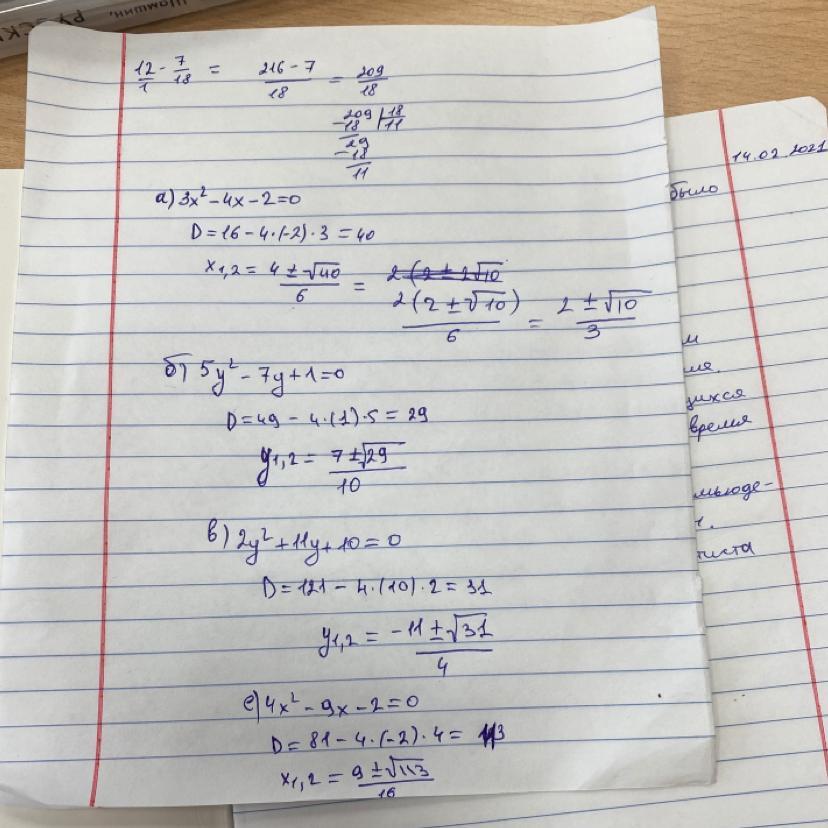 Шамшин,
РУССКИ
12/1 - 7/18 = (216-7)/18 = 209/18
209 | 18
-18 | 11
29
-18
11
а) 3x² - 4x - 2 = 0
D = 16 - 4·(-2)·3 = 40
x₁,₂ = (4 ± √40)/6 = 2(2 ± 2√10
2(2 ± √10)/6 = (2 ± √10)/3
б) 5y² - 7y + 1 = 0
D = 49 - 4·(1)·5 = 29
y₁,₂ = (7 ± √29)/10
в) 2y² + 11y + 10 = 0
D = 121 - 4·(10)·2 = 31
y₁,₂ = (-11 ± √31)/4
е) 4x² - 9x - 2 = 0
D = 81 - 4·(-2)·4 = 113
x₁,₂ = (9 ± √113)/16
14.02.2021
было
м
ия.
щихся
время
мьюде-
тиста